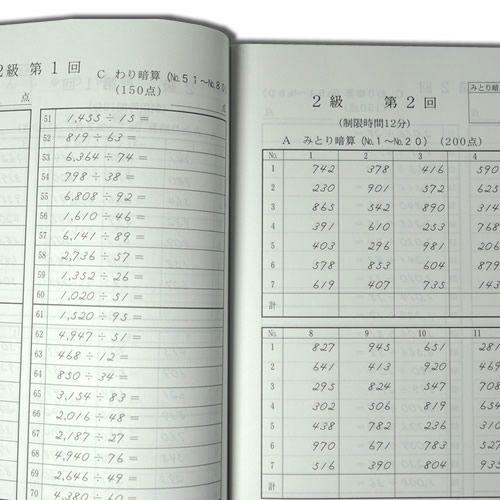 2級 第1回
点
C わり暗算 (No.51〜No.80)
(150点)
点
51 1,455 ÷ 15 =
52 819 ÷ 63 =
53 6,364 ÷ 74 =
54 798 ÷ 38 =
55 6,808 ÷ 92 =
56 1,610 ÷ 46 =
57 6,141 ÷ 89 =
58 2,736 ÷ 57 =
59 1,352 ÷ 26 =
60 1,020 ÷ 51 =
61 1,520 ÷ 95 =
62 4,947 ÷ 51 =
63 468 ÷ 12 =
64 850 ÷ 34 =
65 3,154 ÷ 83 =
66 2,016 ÷ 48 =
67 2,187 ÷ 27 =
68 4,940 ÷ 76 =
69 2,646 ÷ 49 =
70 4,380 ÷ 60 =
みとり暗
2級 第2回
(制限時間12分)
A みとり暗算 (No.1〜No.20) (200点)
No. 1 2 3 4
1 742 378 416 590
2 230 901 572 625
3 865 542 890 314
4 391 610 253 768
5 403 296 981 206
6 578 853 604 879
7 619 407 735 143
計
No. 8 9 10 11
1 827 945 651 281
2 641 413 920 469
3 295 824 547 708
4 302 506 819 654
5 438 782 236 310
6 970 671 783 527
7 516 390 804 935